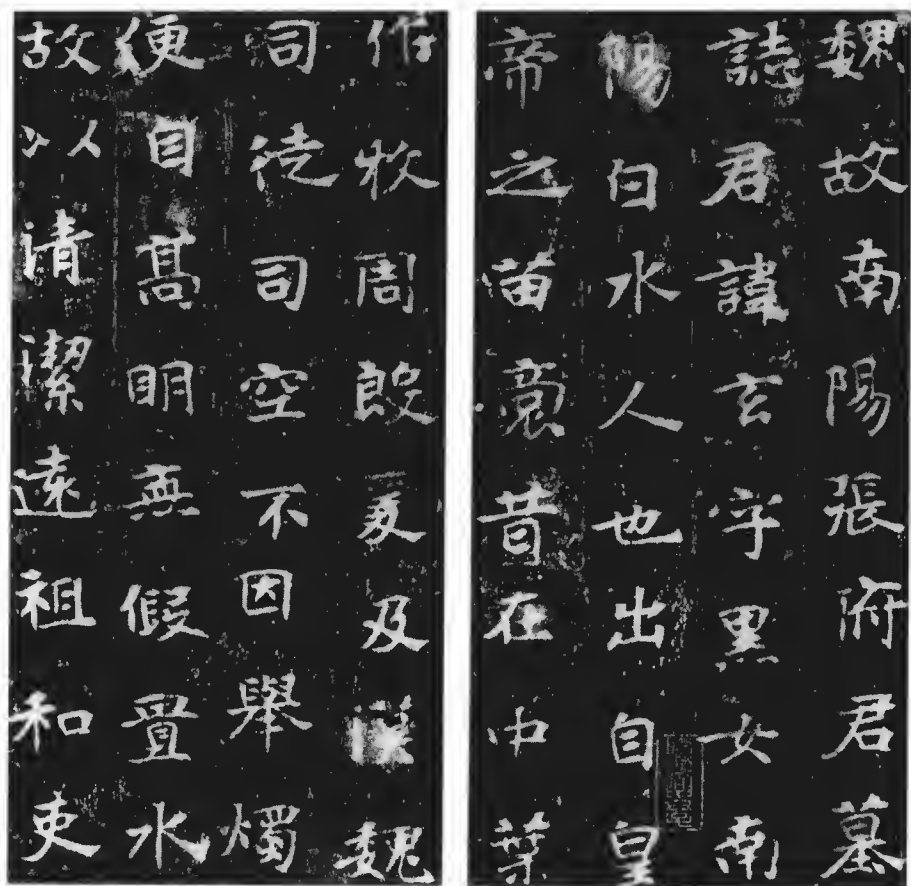 魏故南陽張府君墓
誌君諱玄字黑女南
陽白水人也出自皇
帝之苗裔昔在中葉
作牧周殷爰及漢魏
司徒司空不因舉燭
便自髙明無假置水
故以清潔遠祖和吏